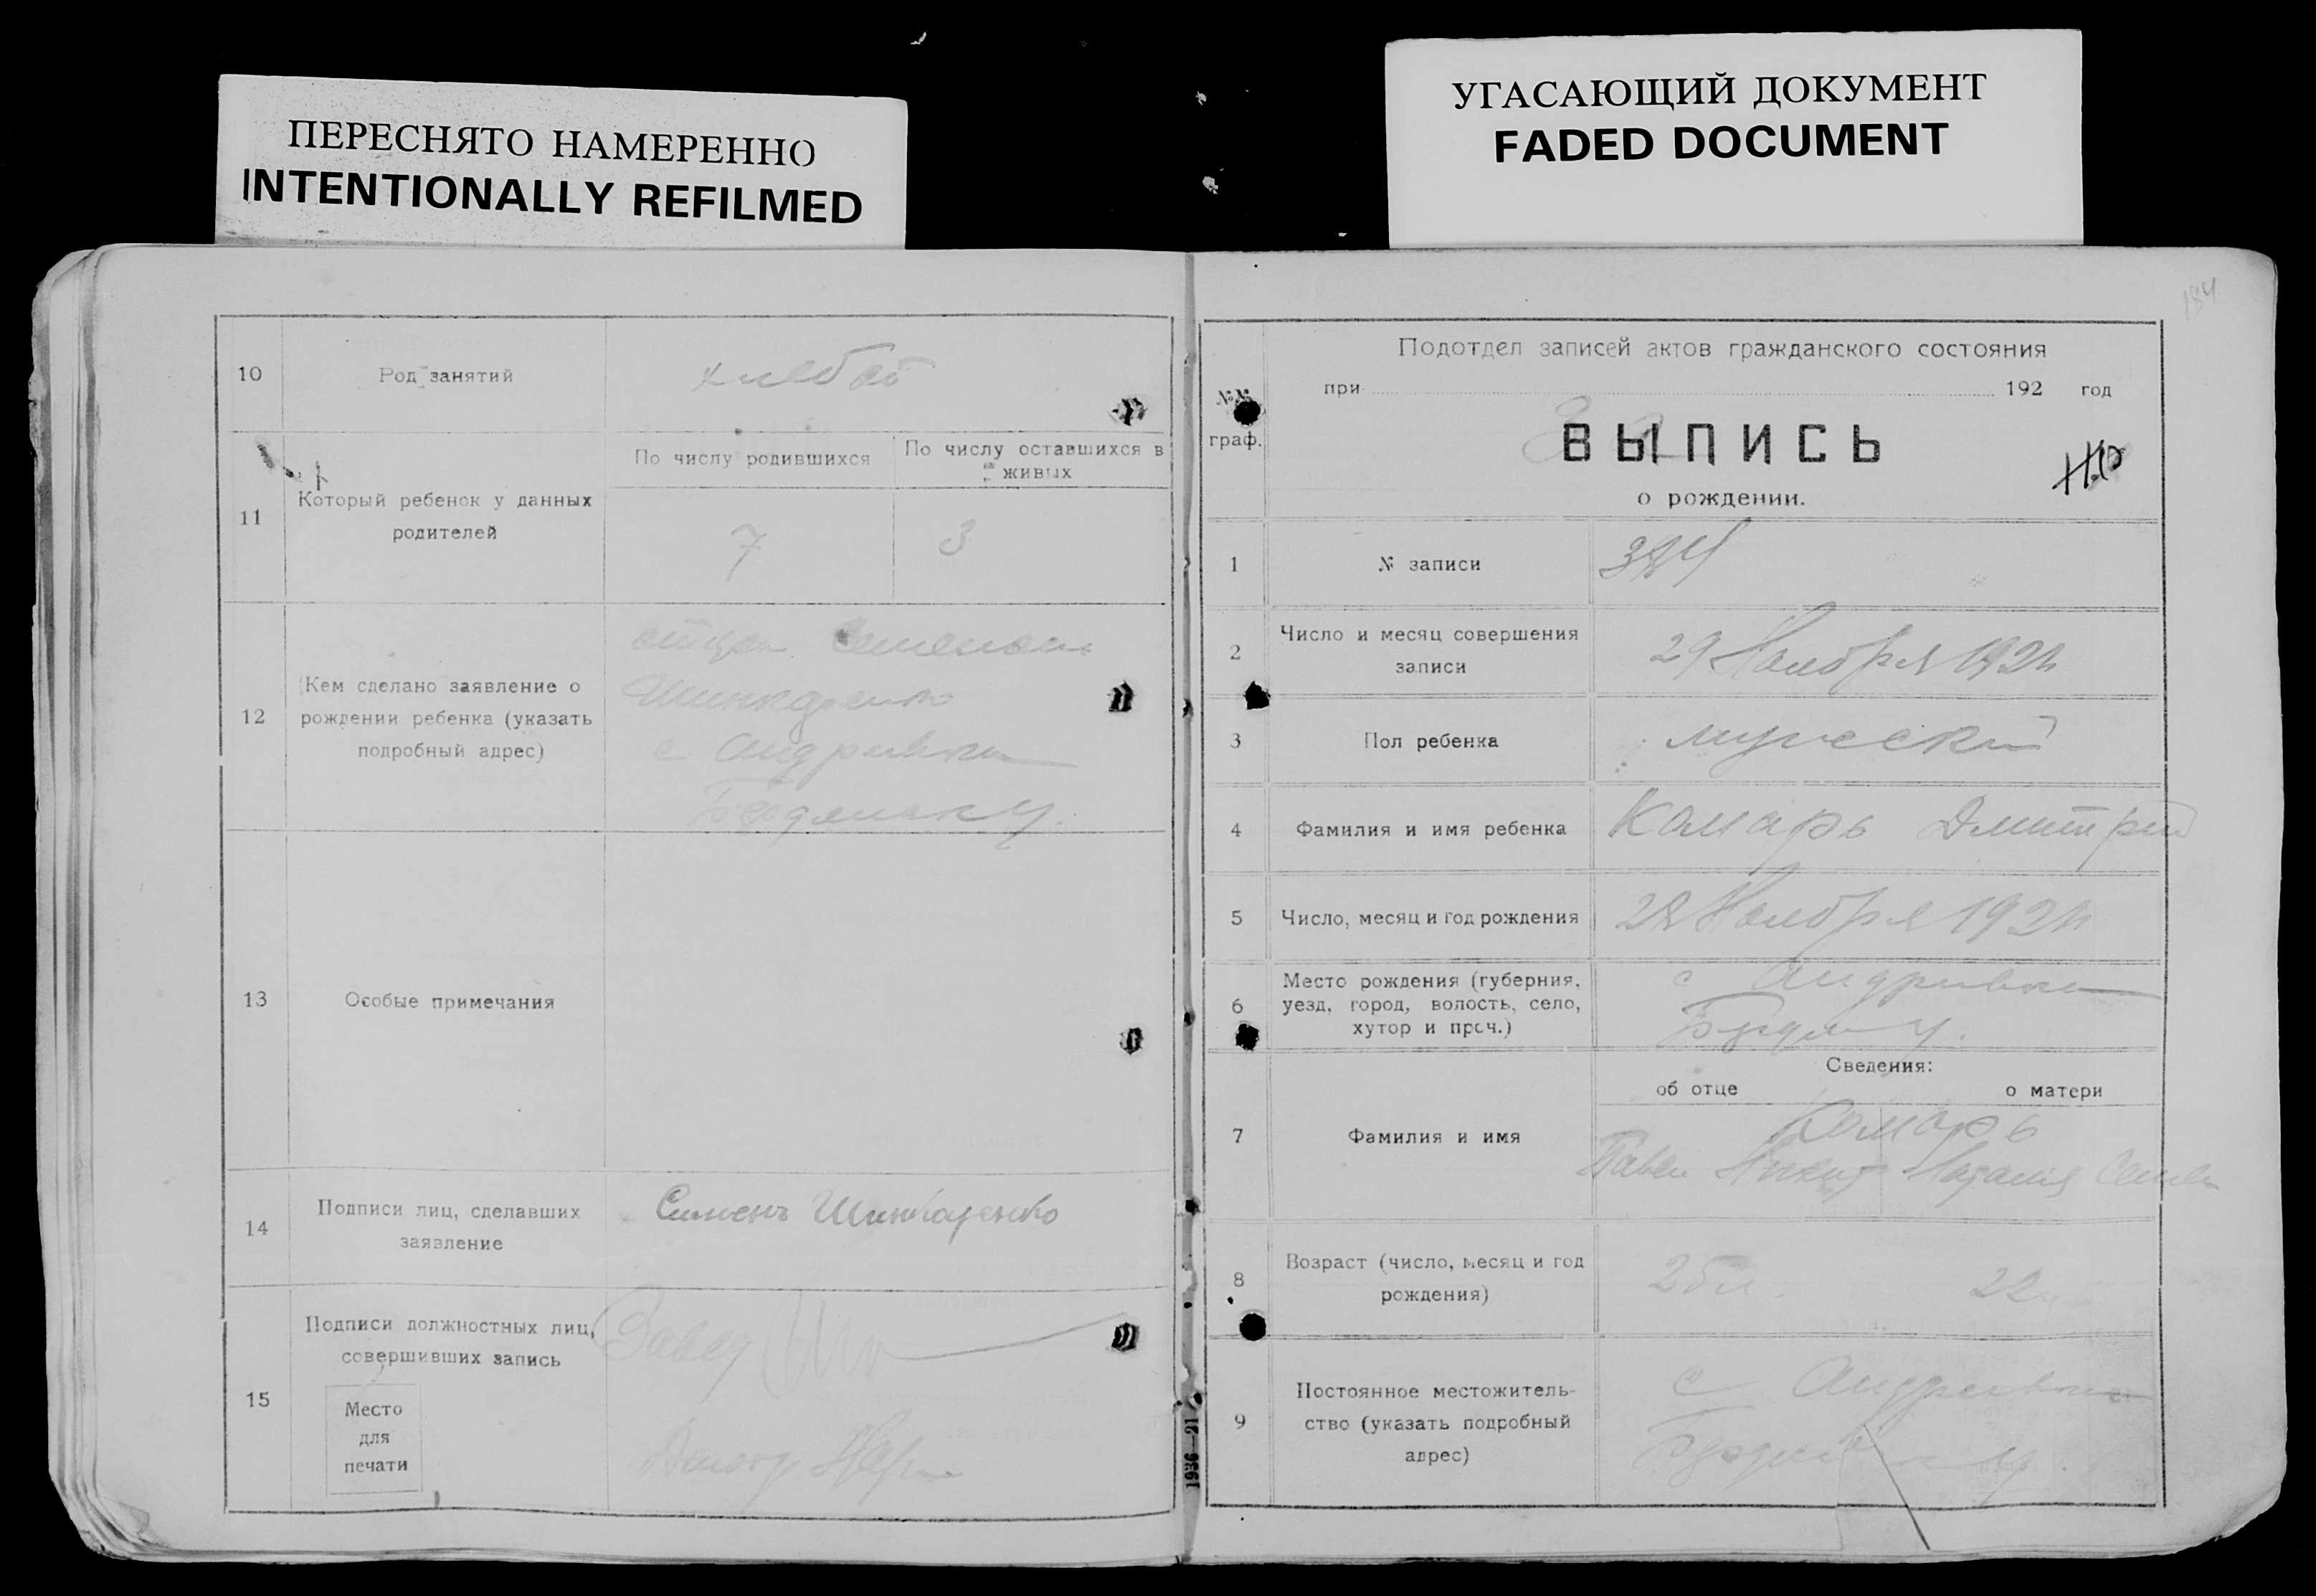 ПЕРЕСНЯТО НАМЕРЕННО
INTENTIONALLY REFILMED
УГАСАЮЩИЙ ДОКУМЕНТ
FADED DOCUMENT
10
Род занятий
хлебоб
11
Который ребенок у данных
родителей
По числу родившихся
По числу оставшихся в
живых
7
3
12
Кем сделано заявление о
рождении ребенка (указать
подробный адрес)
отцом Семеном
Шинкаренко
с Андривка
Бердянску.
13
Особые примечания
14
Подписи лиц, сделавших
заявление
Симонъ Шинкаренко
15
Подписи должностных лиц,
совершивших запись
Место
для
печати
Завед
1936—21
184
№№
граф.
Подотдел записей актов гражданского состояния
при 192 год
ВЫПИСЬ
о рождении.
1
№ записи
2
Число и месяц совершения
записи
29 Ноября 192
3
Пол ребенка
мужеский
4
Фамилия и имя ребенка
Камарь Дмитрий
5
Число, месяц и год рождения
Ноября 192
6
Место рождения (губерния,
уезд, город, волость, село,
хутор и проч.)
с Андривка
Бердян у.
Сведения:
об отце
о матери
7
Фамилия и имя
Комарь
Павел Наталия Семен
8
Возраст (число, месяц и год
рождения)
25 л.
22
9
Постоянное местожитель-
ство (указать подробный
адрес)
с Андреевка
Бердян у.